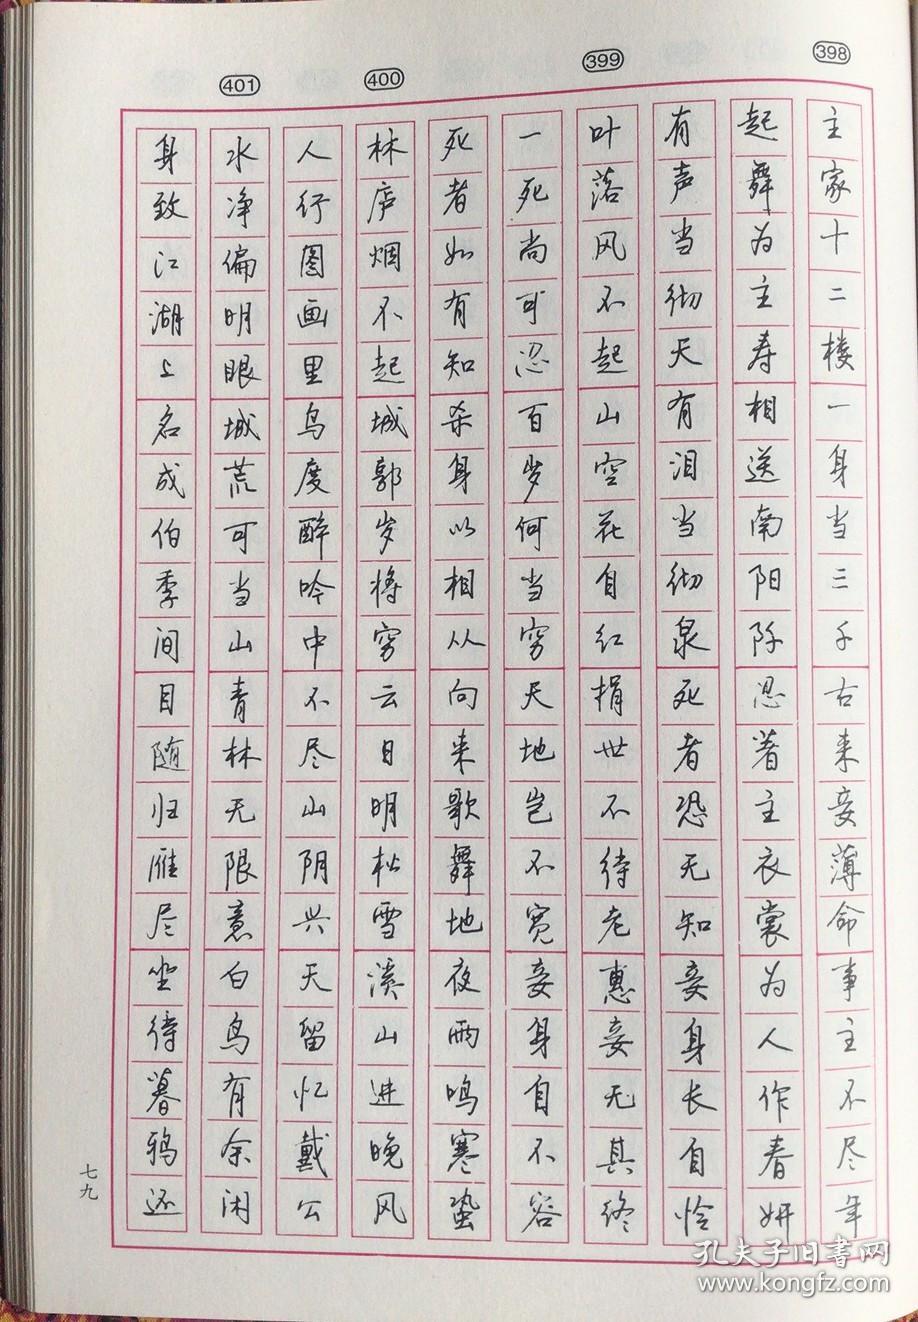 398
主家十二楼一身当三千古来妾薄命事主不尽年
起舞为主寿相送南阳阡忍着主衣裳为人作春妍
有声当彻天有泪当彻泉死者恐无知妾身长自怜
399
叶落风不起山空花自红捐世不待老惠妾无其终
一死尚可忍百岁何当穷天地岂不宽妾身自不容
死者如有知杀身以相从向来歌舞地夜雨鸣寒蛩
400
林庐烟不起城郭岁将穷云日明松雪溪山进晚风
人行图画里鸟度醉吟中不尽山阴兴天留忆戴公
401
水净偏明眼城荒可当山青林无限意白鸟有余闲
身致江湖上名成伯季间目随归雁尽坐待暮鸦还
七九
孔夫子旧书网
www.kongfz.com